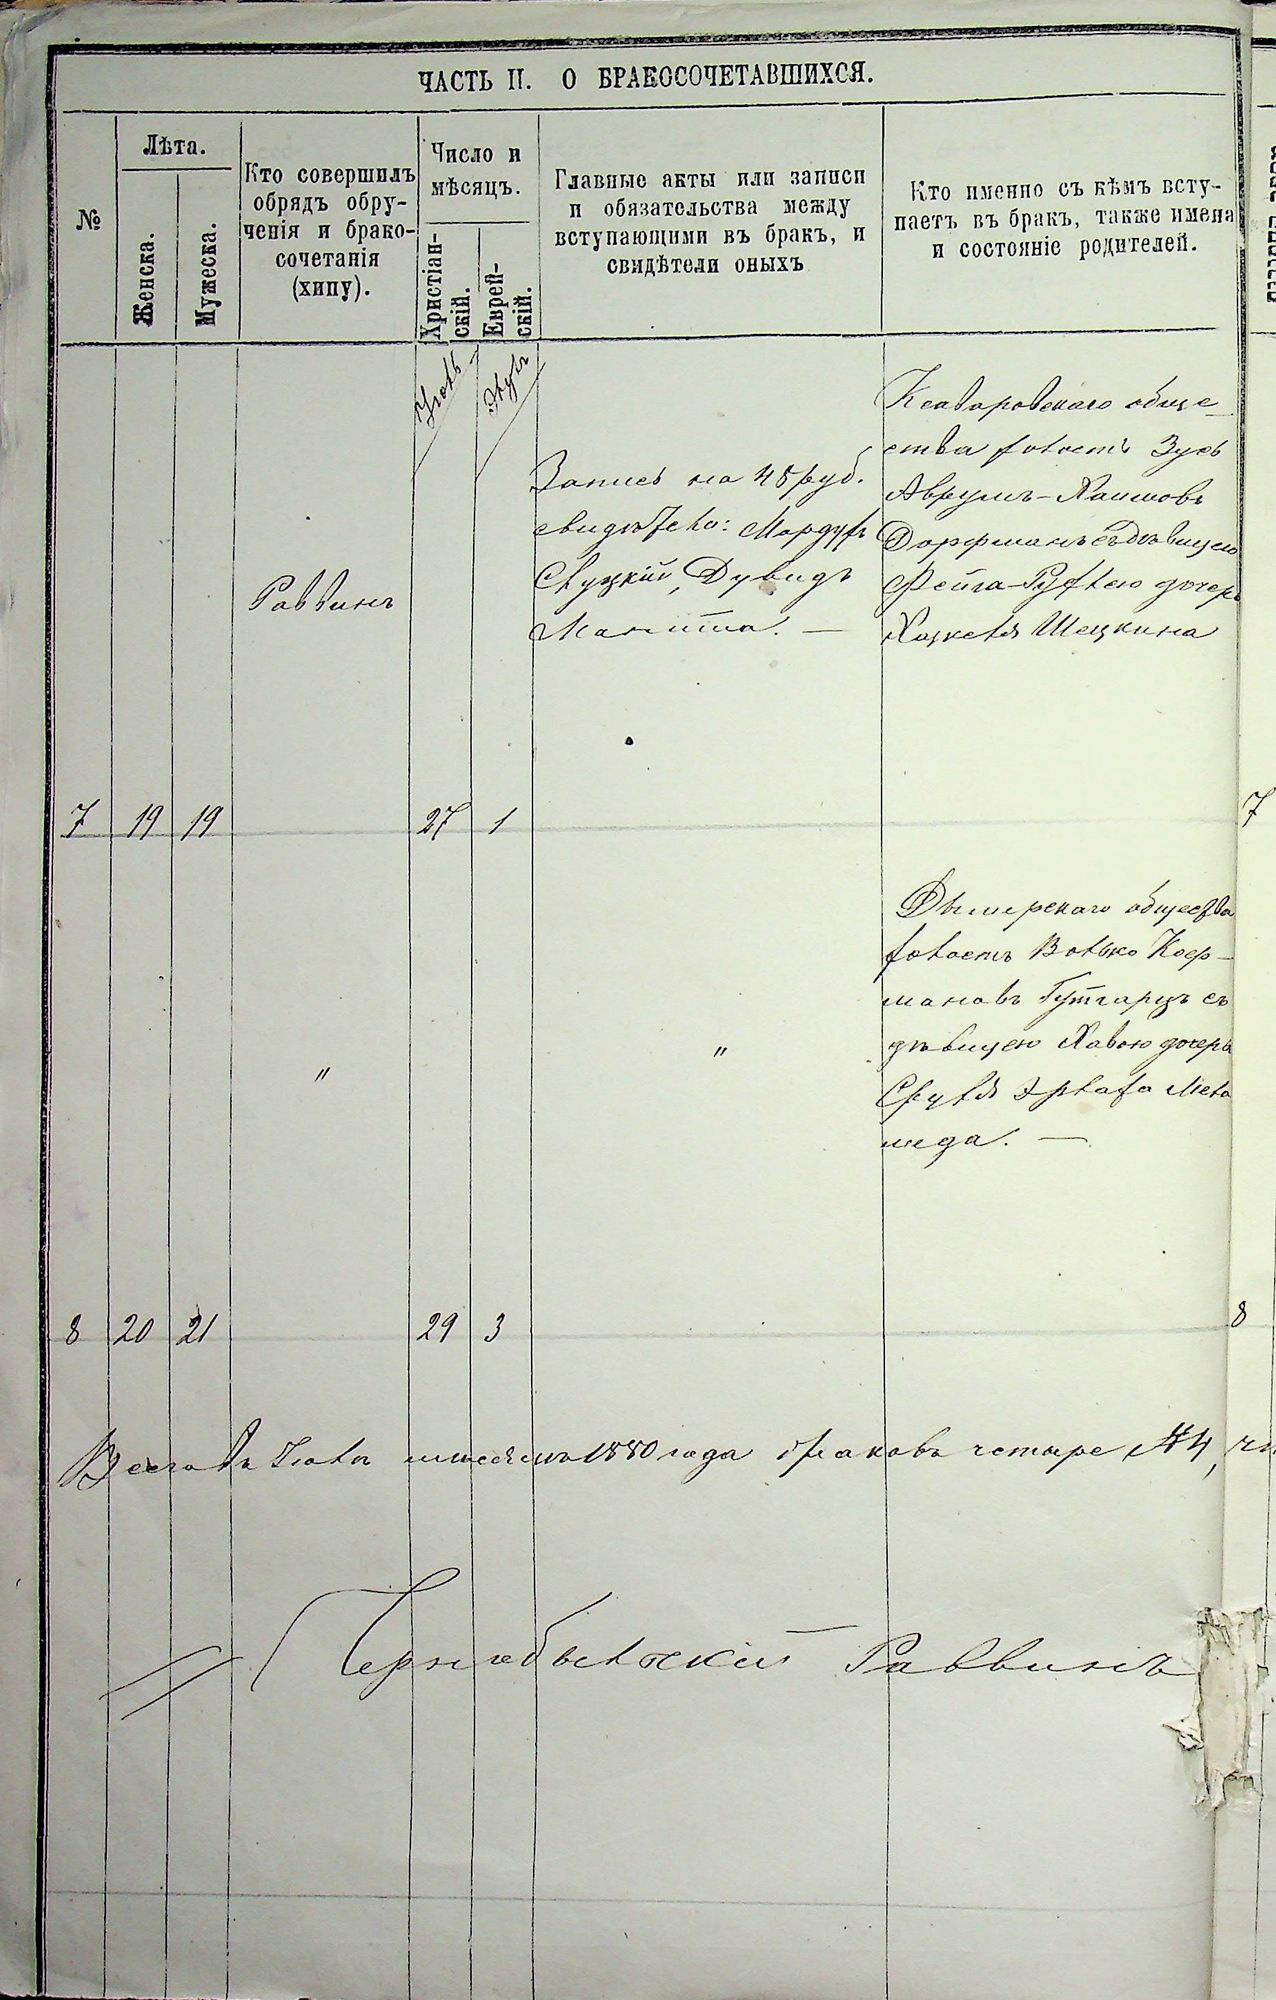 ЧАСТЬ II. О БРАКОСОЧЕТАВШИХСЯ.
№
Лѣта.
Женска.
Мужеска.
Кто совершилъ
обрядъ обру-
ченія и брако-
сочетанія
(хипу).
Число и
мѣсяцъ.
Христіан-
скій.
Еврей-
скій.
Главные акты или записи
и обязательства между
вступающими въ бракъ, и
свидѣтели оныхъ
Кто именно съ кѣмъ всту-
паетъ въ бракъ, также имена
и состояніе родителей.
Іюль
Элулъ
7 19 19
Раввинъ
27 1
Запись на 48 руб.
свидѣтели: Мордухъ
Слуцкій, Дувидъ
общe-
ства холостъ Зусь
Аврумъ-Хаимовъ
Дорфманъ съ дѣвицею
Фейга-Рухлею дочерь
Хацкеля Шецкина
8 20 21
"
29 3
"
Дымерскаго общества
холостъ Волько
Гутгарцъ съ
дѣвицею Хавою дочерь
Сруля
Мела
меда. —
Всего въ Іюлѣ мѣсяцѣ 1880 года браковъ четыре №4,
Чернобыльскій Раввинъ
7
8